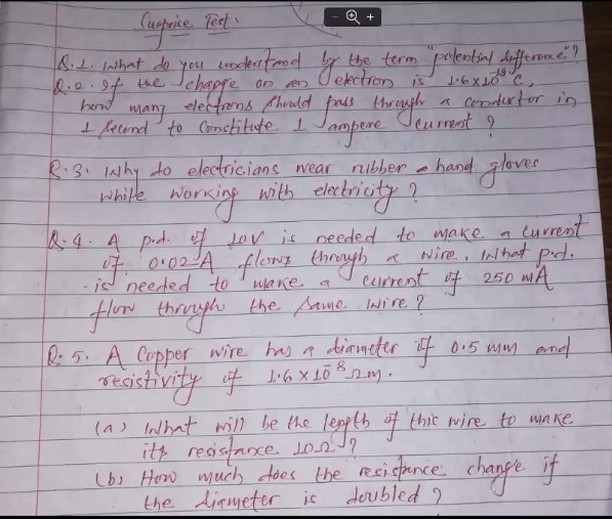 Surprise Test.
Q.1. What do you understand by the term "potential difference"?
Q.2. If the charge on an electron is 1.6 x 10⁻¹⁹ C,
how many electrons should pass through a conductor in
1 second to constitute 1 ampere current ?
Q.3. Why do electricians wear rubber - hand gloves
while working with electricity ?
Q.4. A p.d. of 10V is needed to make a current
of 0.02 A flows through a wire. What p.d.
is needed to make a current of 250 mA
flow through the same wire ?
Q.5. A Copper wire has a diameter of 0.5 mm and
resistivity of 1.6 x 10⁻⁸ Ωm.
(a) What will be the length of this wire to make
its resistance 10Ω ?
(b) How much does the resistance change if
the diameter is doubled ?